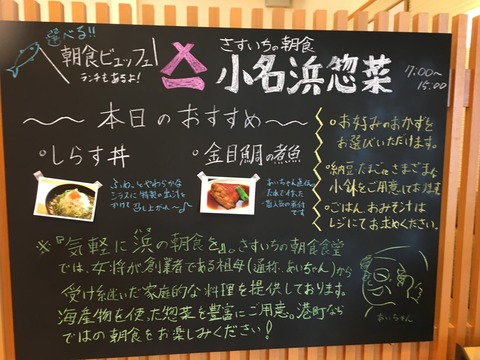 選べる!!
朝食ビュッフェ
ランチもあるよ!
さすいちの朝食
小名浜惣菜
7:00〜
15:00
〜本日のおすすめ〜
・しらす丼
ふわっとやわらかな
シラスに特製の出汁を
かけて召し上がれ〜♪
・金目鯛の煮魚
あいちゃん直伝
たれで作った
一番人気の煮付
です
・お好みのおかずを
お選びいただけます。
・納豆たまごetcさまざまな
小鉢をご用意しており〼
・ごはん、おみそ汁は
レジにてお求めください。
※『気軽に浜の朝食を』。さすいちの朝食食堂
では、女将が創業者である祖母(通称、あいちゃん)から
受け継いだ家庭的な料理を提供しております。
海産物を使った惣菜を豊富にご用意。港町なら
ではの朝食をお楽しみください!
あいちゃん